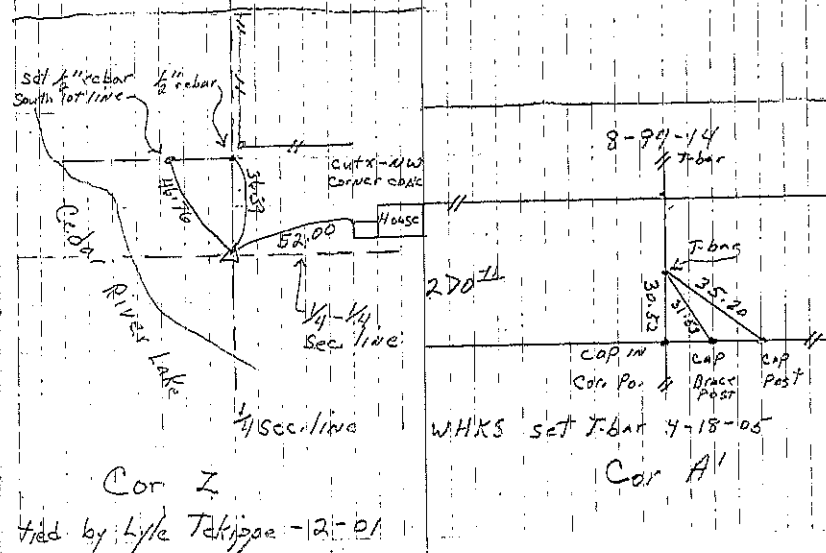 set 1/2" rebar
South lot line
1/2" rebar
cut x-NW
corner conc
House
46.76
52.00
Cedar River Lake
1/4-1/4
Sec. line
1/4 Sec. line
Cor Z
tied by Lyle Tekippe -12-01
8-94-14
T-bar
T-bar
30.53
31.63
35.20
Cap in
Corn Po.
Cap
Brace
Post
Cap
Post
WHKS set T-bar 4-18-05
Cor A'